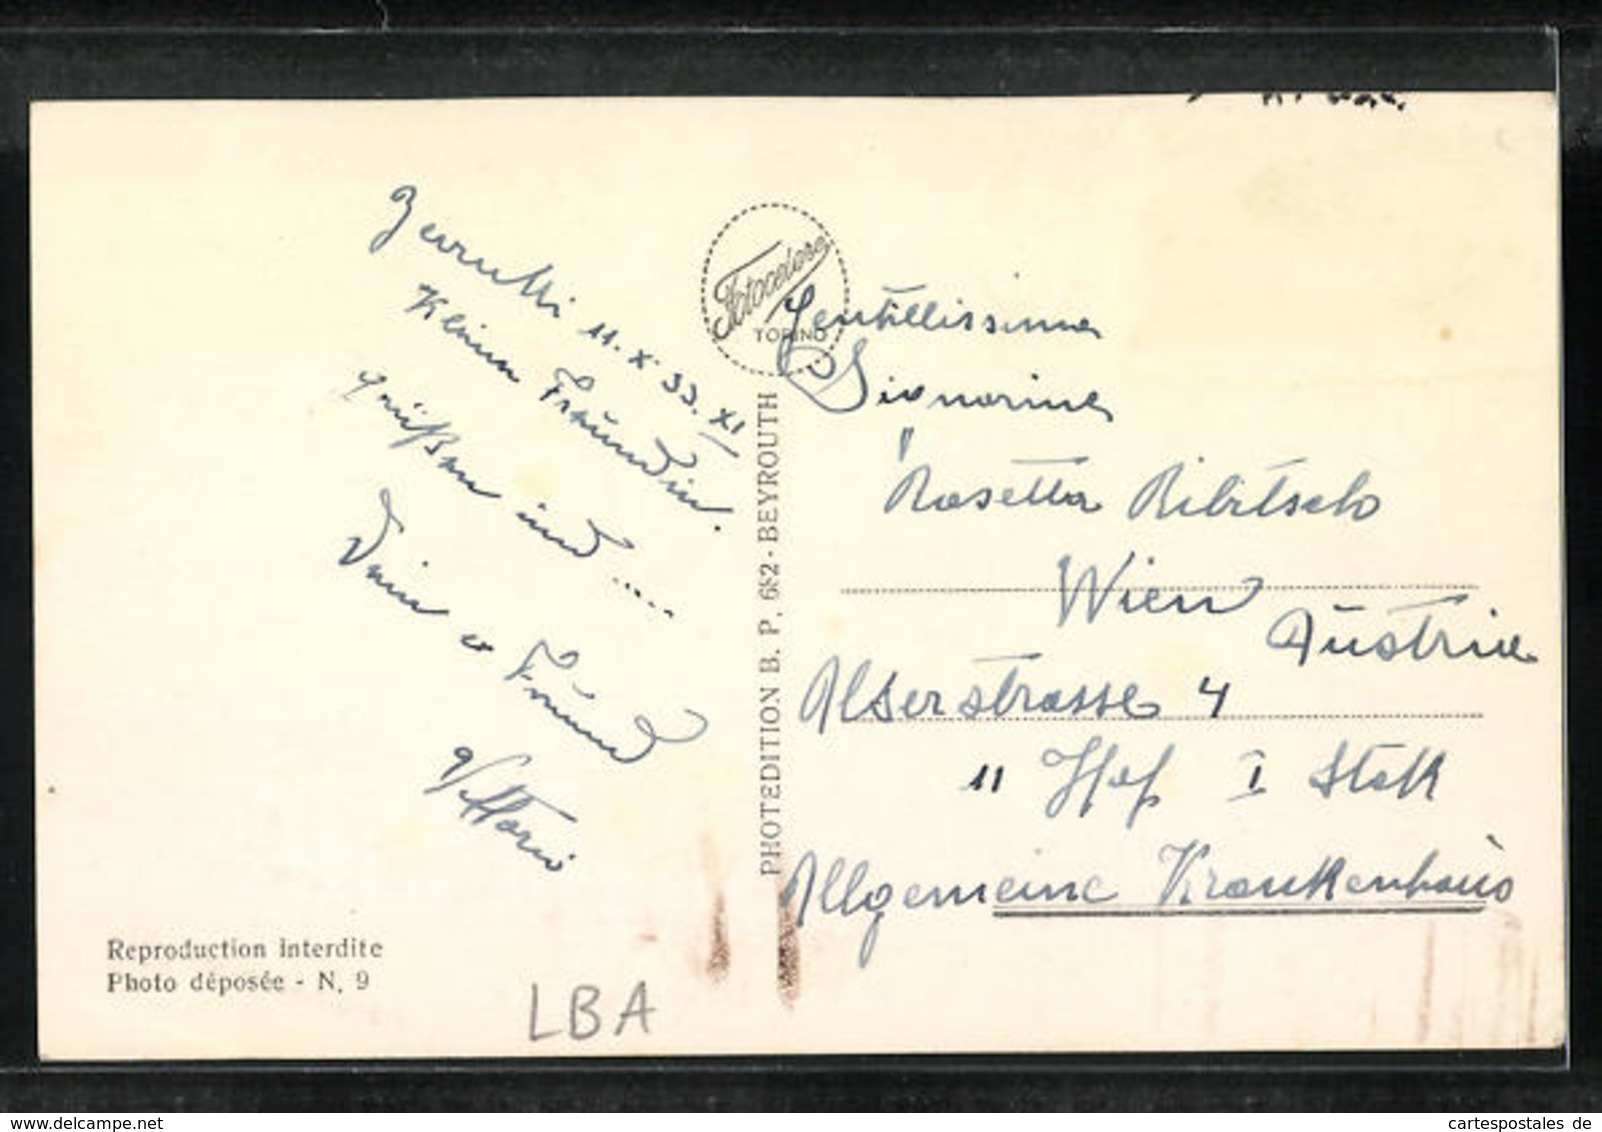 11.X.33.XI
Kleine Fräundin.
grüßen und ....
Dein Fraund
Vittorio
Fotocelere
TORINO
PHOTEDITION B. P. 682 - BEYROUTH
Gentillissima
Signorina
Rosetta Ribitsch
Wien
Austria
Alserstrasse 4
11 Hof I Stok
Allgemeine Krankenhaus
Reproduction interdite
Photo déposée - N. 9
LBA
www.delcampe.net
cartespostales de